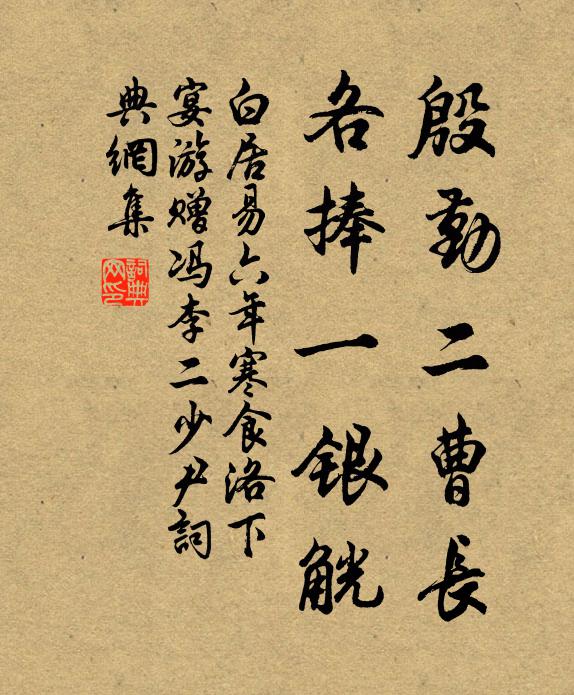 殷勤二曹長
各捧一銀觥
白居易六年寒食洛下
宴游贈冯李二少尹詞
典網集
詞典
网印